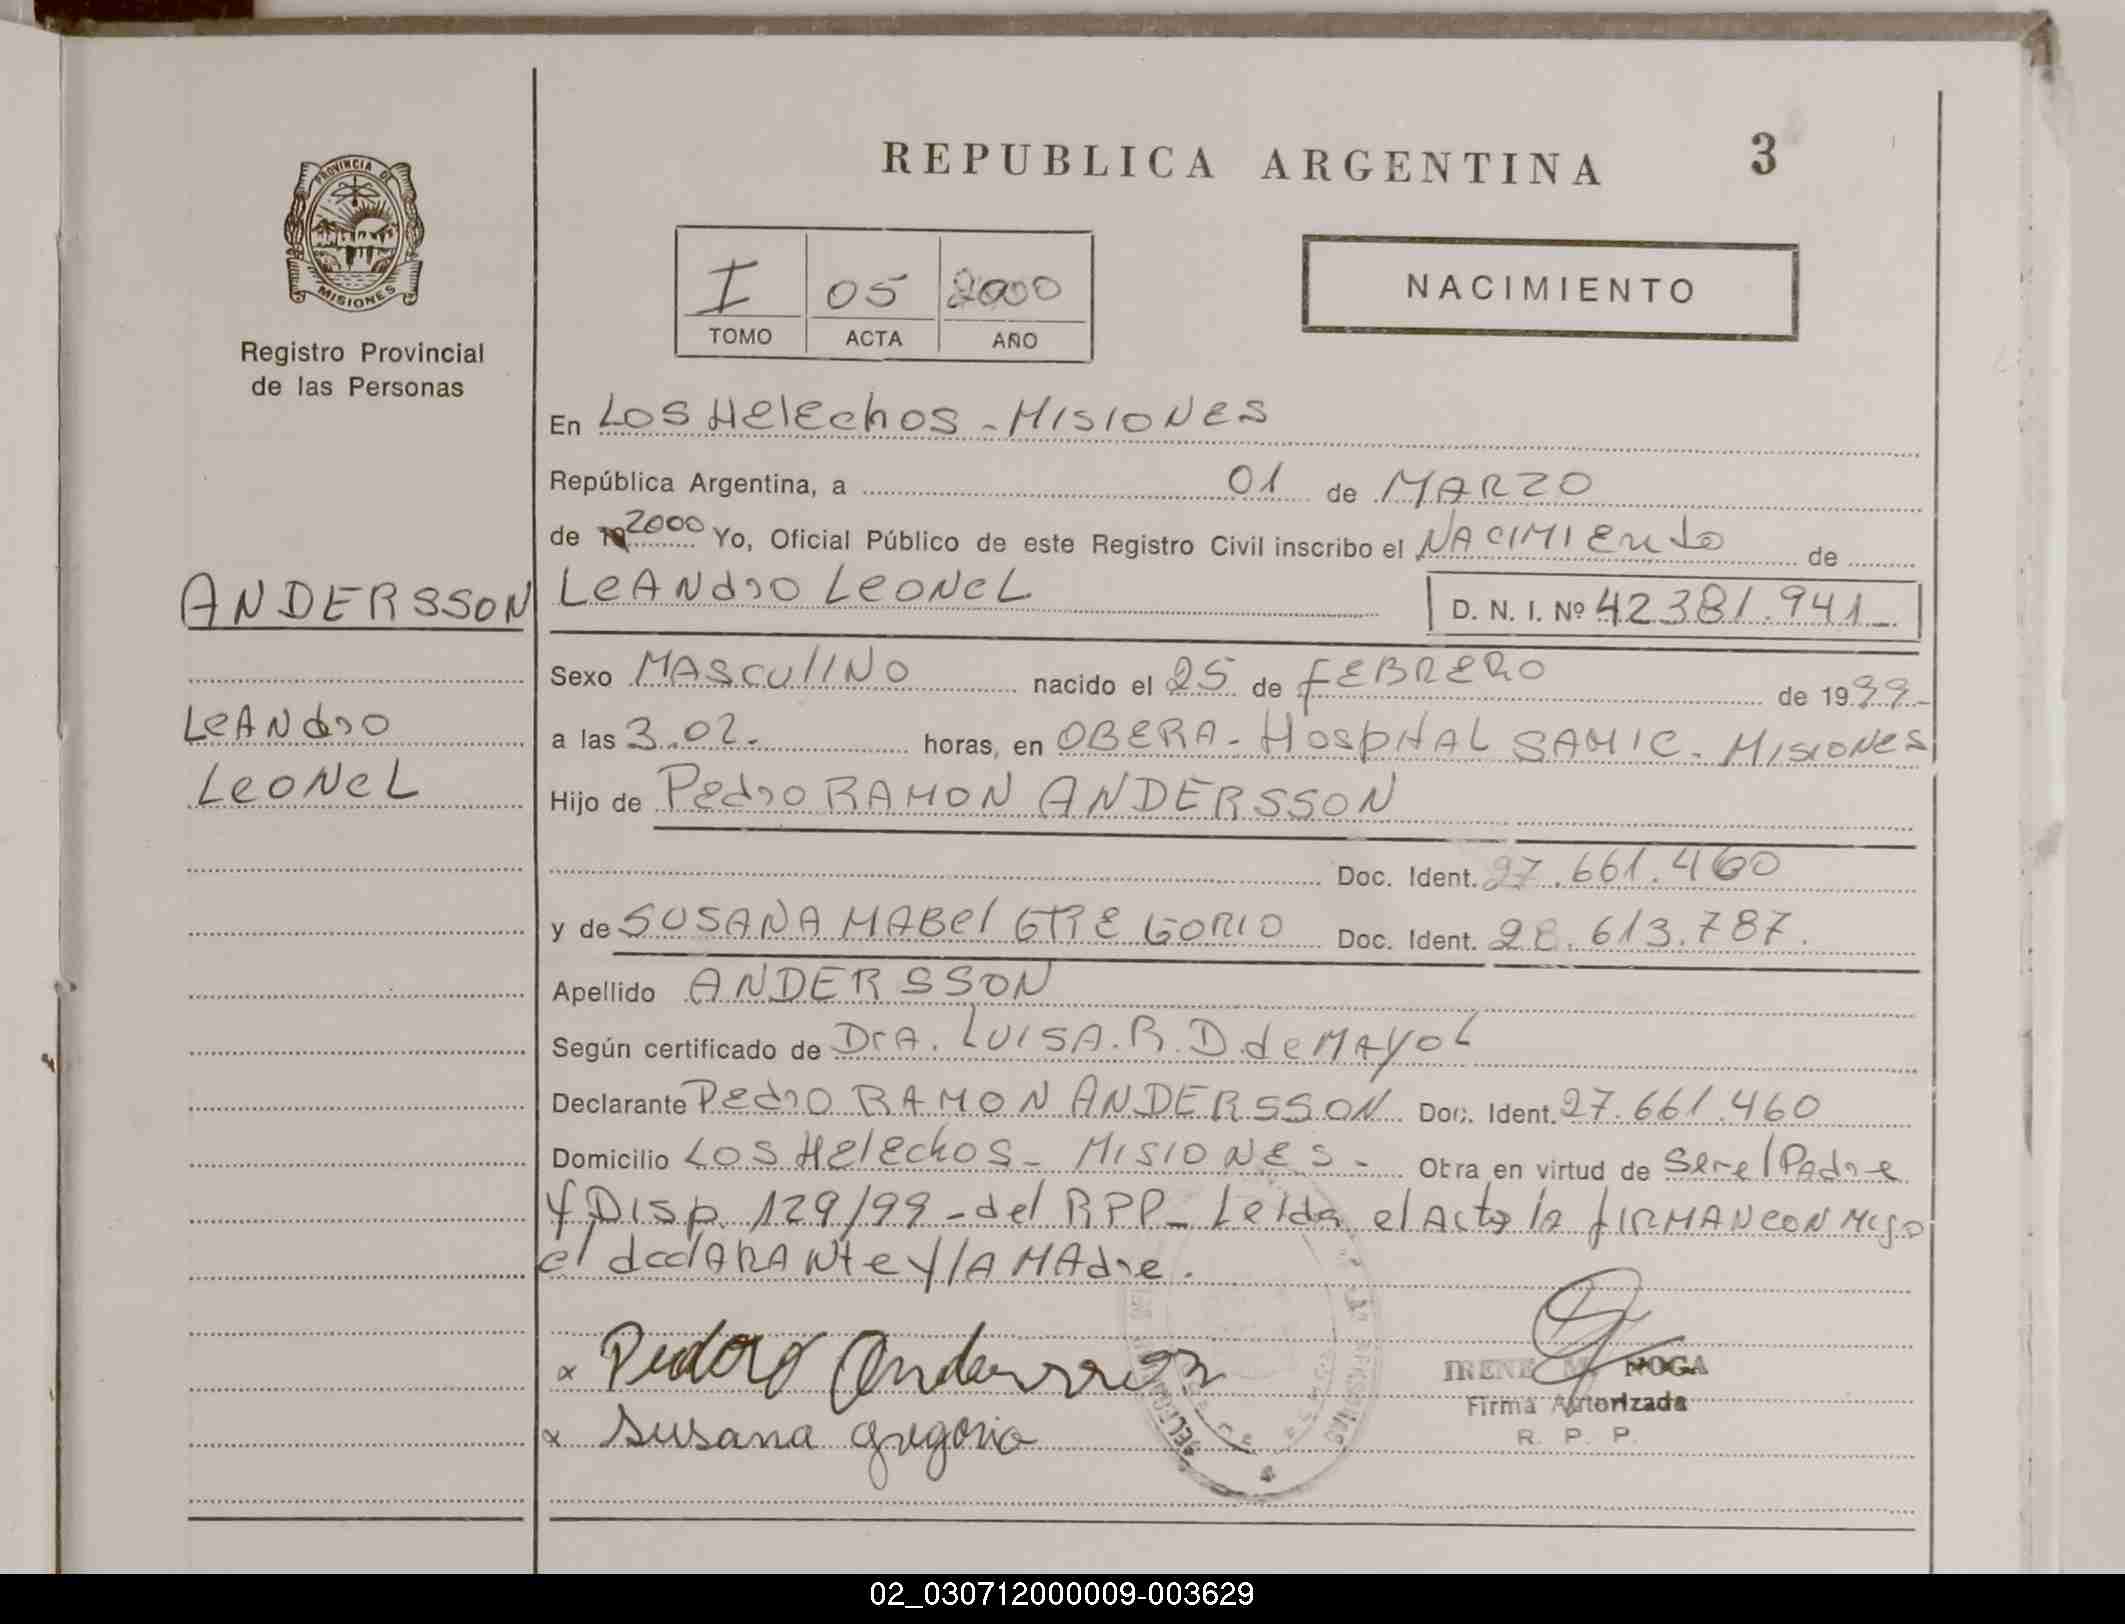 REPUBLICA ARGENTINA 3
PROVINCIA DE
MISIONES
Registro Provincial
de las Personas
I 05 2000
TOMO ACTA AÑO
NACIMIENTO
En LOS HELECHOS - MISIONES
República Argentina, a 01 de MARZO
de 19 2000 Yo, Oficial Público de este Registro Civil inscribo el NACIMIENTO de
ANDERSSON
LEANDRO LEONEL D. N. I. Nº 42381.941
Sexo MASCULINO nacido el 25 de FEBRERO de 1999-
LEANDRO
LEONEL
a las 3.02.- horas, en OBERA - HOSPITAL SAMIC - MISIONES
Hijo de PEDRO RAMON ANDERSSON
Doc. Ident. 27.661.460
y de SUSANA MABEL GREGORIO Doc. Ident. 28.613.787.
Apellido ANDERSSON
Según certificado de DRA. LUISA. R. D. de MAYOL
Declarante PEDRO RAMON ANDERSSON Doc. Ident. 27.661.460
Domicilio LOS HELECHOS - MISIONES - Obra en virtud de Ser el Padre
Y DISP. 129/99 - del RPP - Leida el Acta la FIRMAN CON Migo
el declARANte Y lA MAdre.
x Pedro Andersson
x Susana Gregorio
IRENE M. NOGA
Firma Autorizada
R. P. P.
02_030712000009-003629